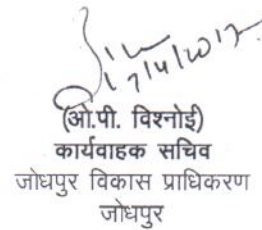 17/4/2017
(ओ.पी. विश्नोई)
कार्यवाहक सचिव
जोधपुर विकास प्राधिकरण
जोधपुर